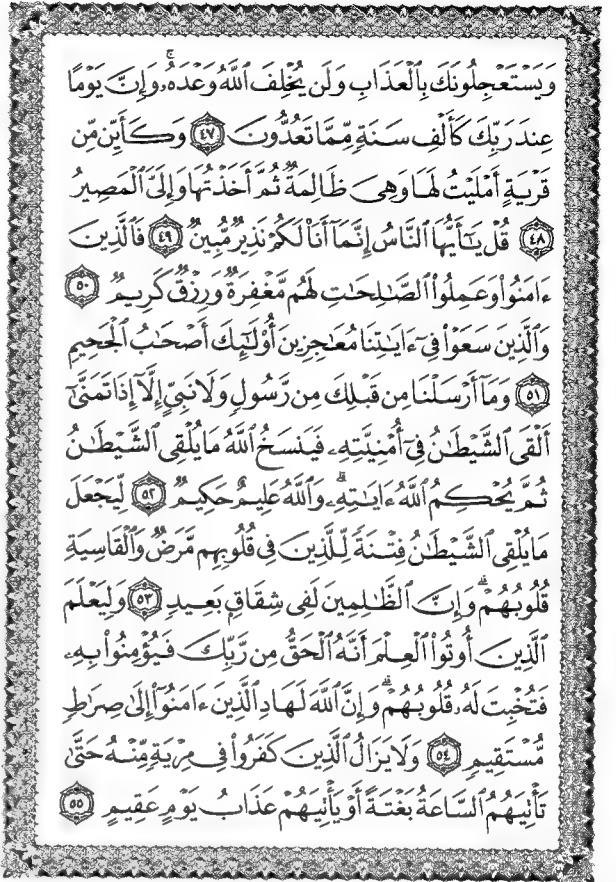 وَيَسْتَعْجِلُونَكَ بِالْعَذَابِ وَلَن يُخْلِفَ اللَّهُ وَعْدَهُۥۚ وَإِنَّ يَوْمًا
عِندَ رَبِّكَ كَأَلْفِ سَنَةٍ مِّمَّا تَعُدُّونَ ٤٧ وَكَأَيِّن مِّن
قَرْيَةٍ أَمْلَيْتُ لَهَا وَهِيَ ظَالِمَةٌ ثُمَّ أَخَذْتُهَا وَإِلَيَّ الْمَصِيرُ
٤٨ قُلْ يَٰٓأَيُّهَا النَّاسُ إِنَّمَآ أَنَا۠ لَكُمْ نَذِيرٌ مُّبِينٌ ٤٩ فَالَّذِينَ
ءَامَنُوا۟ وَعَمِلُوا۟ الصَّٰلِحَٰتِ لَهُم مَّغْفِرَةٌ وَرِزْقٌ كَرِيمٌ ٥٠
وَالَّذِينَ سَعَوْا۟ فِىٓ ءَايَٰتِنَا مُعَٰجِزِينَ أُو۟لَٰٓئِكَ أَصْحَٰبُ الْجَحِيمِ
٥١ وَمَآ أَرْسَلْنَا مِن قَبْلِكَ مِن رَّسُولٍ وَلَا نَبِىٍّ إِلَّآ إِذَا تَمَنَّىٰٓ
أَلْقَى الشَّيْطَٰنُ فِىٓ أُمْنِيَّتِهِۦ فَيَنسَخُ اللَّهُ مَا يُلْقِى الشَّيْطَٰنُ
ثُمَّ يُحْكِمُ اللَّهُ ءَايَٰتِهِۦۗ وَاللَّهُ عَلِيمٌ حَكِيمٌ ٥٢ لِّيَجْعَلَ
مَا يُلْقِى الشَّيْطَٰنُ فِتْنَةً لِّلَّذِينَ فِى قُلُوبِهِم مَّرَضٌ وَالْقَاسِيَةِ
قُلُوبُهُمْۗ وَإِنَّ الظَّٰلِمِينَ لَفِى شِقَاقٍ بَعِيدٍ ٥٣ وَلِيَعْلَمَ
الَّذِينَ أُوتُوا۟ الْعِلْمَ أَنَّهُ الْحَقُّ مِن رَّبِّكَ فَيُؤْمِنُوا۟ بِهِۦ
فَتُخْبِتَ لَهُۥ قُلُوبُهُمْۗ وَإِنَّ اللَّهَ لَهَادِ الَّذِينَ ءَامَنُوٓا۟ إِلَىٰ صِرَٰطٍ
مُّسْتَقِيمٍ ٥٤ وَلَا يَزَالُ الَّذِينَ كَفَرُوا۟ فِى مِرْيَةٍ مِّنْهُ حَتَّىٰ
تَأْتِيَهُمُ السَّاعَةُ بَغْتَةً أَوْ يَأْتِيَهُمْ عَذَابُ يَوْمٍ عَقِيمٍ ٥٥